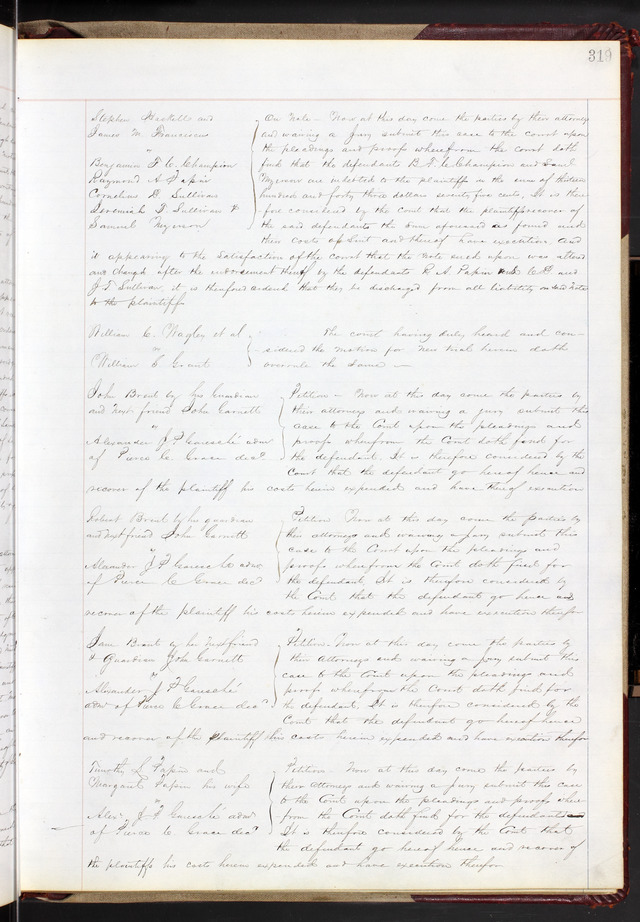 319
Stephen Haskell and
James M. Franciscus
vs
Benjamin F. W. Champion
Raymond A Papin
Cornelius D Sullivan
Jeremiah D. Sullivan &
Samuel
On Note - Now at this day come the parties by their attorneys
and waiving a jury submit this case to the court upon
the pleadings and proof wherefrom the court doth
find that the defendants B. F. W. Champion and Saml
are indebted to the plaintiffs in the sum of thirteen
hundred and forty three dollars seventy five cents. It is there
fore considered by the court that the plaintiffs recover of
the said defendants the sum aforesaid as found and
their costs of suit and thereof have execution and
it appearing to the satisfaction of the court that the note sued upon was altered
and changed after the endorsement thereof by the defendants R. A. Papin C D and
J. D Sullivan, it is therefore ordered that they be discharged from all liability on said note
to the plaintiffs
William C. Wagley et al.
vs
William C Grant
The court having duly heard and con-
sidered the motion for new trial herein doth
overrule the same -
John Brent by his Guardian
and next friend John Garnett
vs
Alexander J. P. Garesché admr
of Pierce C. Grace decd
Petition - Now at this day come the parties by
their attorneys and waiving a jury submit this
case to the Court upon the pleadings and
proofs wherefrom the Court doth find for
the defendant. It is therefore considered by the
Court that the defendant go hereof hence and
recover of the plaintiff his costs herein expended and have thereof execution
Robert Brent by his guardian
and next friend John Garnett
vs
Alexander J. P Garesché admr
of Pierce C Grace decd
Petition Now at this day come the parties by
their attorneys and waiving a jury submit this
case to the Court upon the pleadings and
proofs wherefrom the Court doth find for
the defendant, It is therefore considered by
the Court that the defendant go hence and
recover of the plaintiff his costs herein expended and have execution therefor
Jane Brent by her next friend
& Guardian John Garnett
vs
Alexander J P Garesché
admr of Pierce C Grace decd
Petition. Now at this day come the parties by
their Attorneys and waiving a jury submit this
case to the Court upon the pleadings and
proofs wherefrom the Court doth find for
the defendant. It is therefore considered by the
Court that the defendant go hereof hence
and recover of the plaintiff his costs herein expended and have execution therefor
Timothy L Papin and
Margaret Papin his wife
vs
Alexr J P Garesché admr
of Pierce C. Grace decd
Petition - Now at this day come the parties by
their Attorneys and waiving a jury submit this case
to the Court upon the pleadings and proofs where
from the Court doth find for the defendant
It is therefore considered by the Court that
the defendant go hereof hence and recover of
the plaintiffs his costs herein expended and have execution therefor